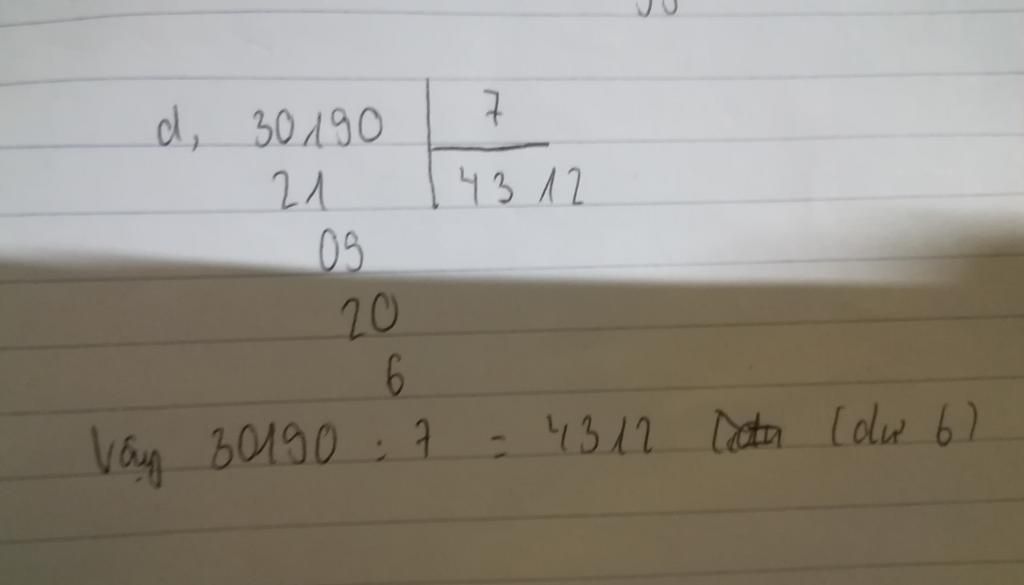 d, 30190 7
21 4312
09
20
6
Vậy 30190 : 7 = 4312 (dư 6)